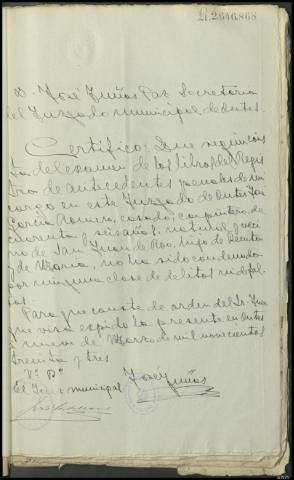 A.2646.868
D. José Liñas Paz Secretario
del Juzgado municipal de Outes.
Certifico: Que según cons
ta del examen de los libros de Regis
tro de antecedentes penales de mi
cargo en este Juzgado de Outes José
García Romero, casado, carpintero, de
cuarenta y seis años, natural y veci
no de San Juan de Roo, hijo de Benito
y de María, no ha sido condenado
por ninguna clase de delitos ni de fal
tas.
Para que conste de orden del Sr. Juez
que visa expido la presente en Outes
a nueve de Marzo de mil novecientos
treinta y tres
Vº Bº
El Juez municipal José Liñas